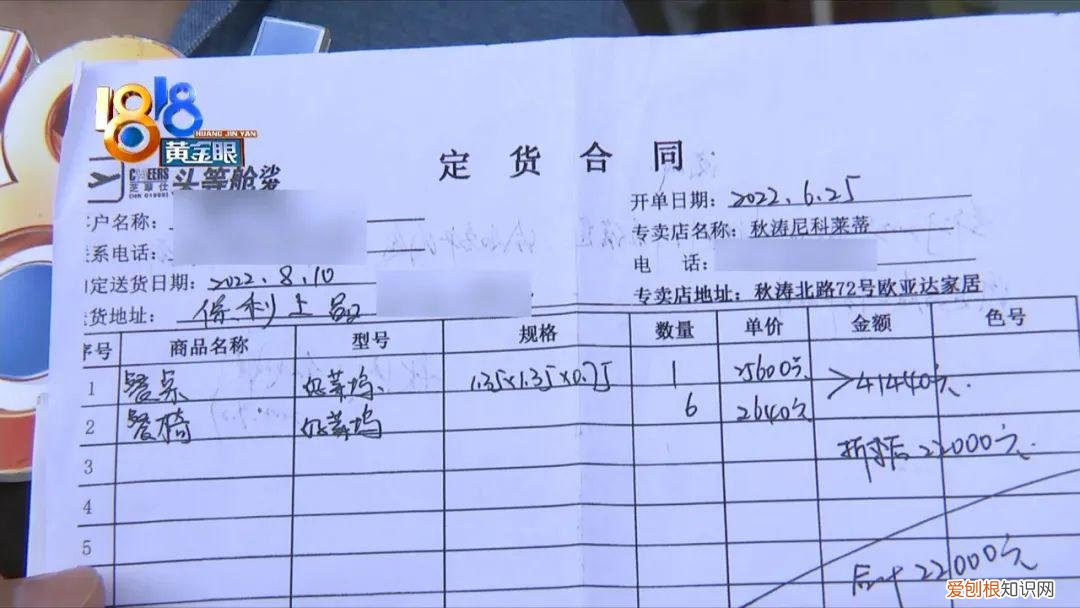 1818
HUANG JIN YAN
黄金眼
CHEERS
芝华仕
头等舱
定货合同
客户名称:
开单日期: 2022.6.25
联系电话:
专卖店名称: 秋涛尼科莱蒂
约定送货日期: 2022.8.10
电 话:
送货地址: 保利上品
专卖店地址: 秋涛北路72号欧亚达家居
序号 商品名称 型号 规格 数量 单价 金额 色号
1 餐桌 好莱坞 1.35×1.35×0.75 1 25600元 >41440元
2 餐椅 好莱坞 6 2640元
3 折扣后 22000元
4
5 22000元
爱刨根知识网